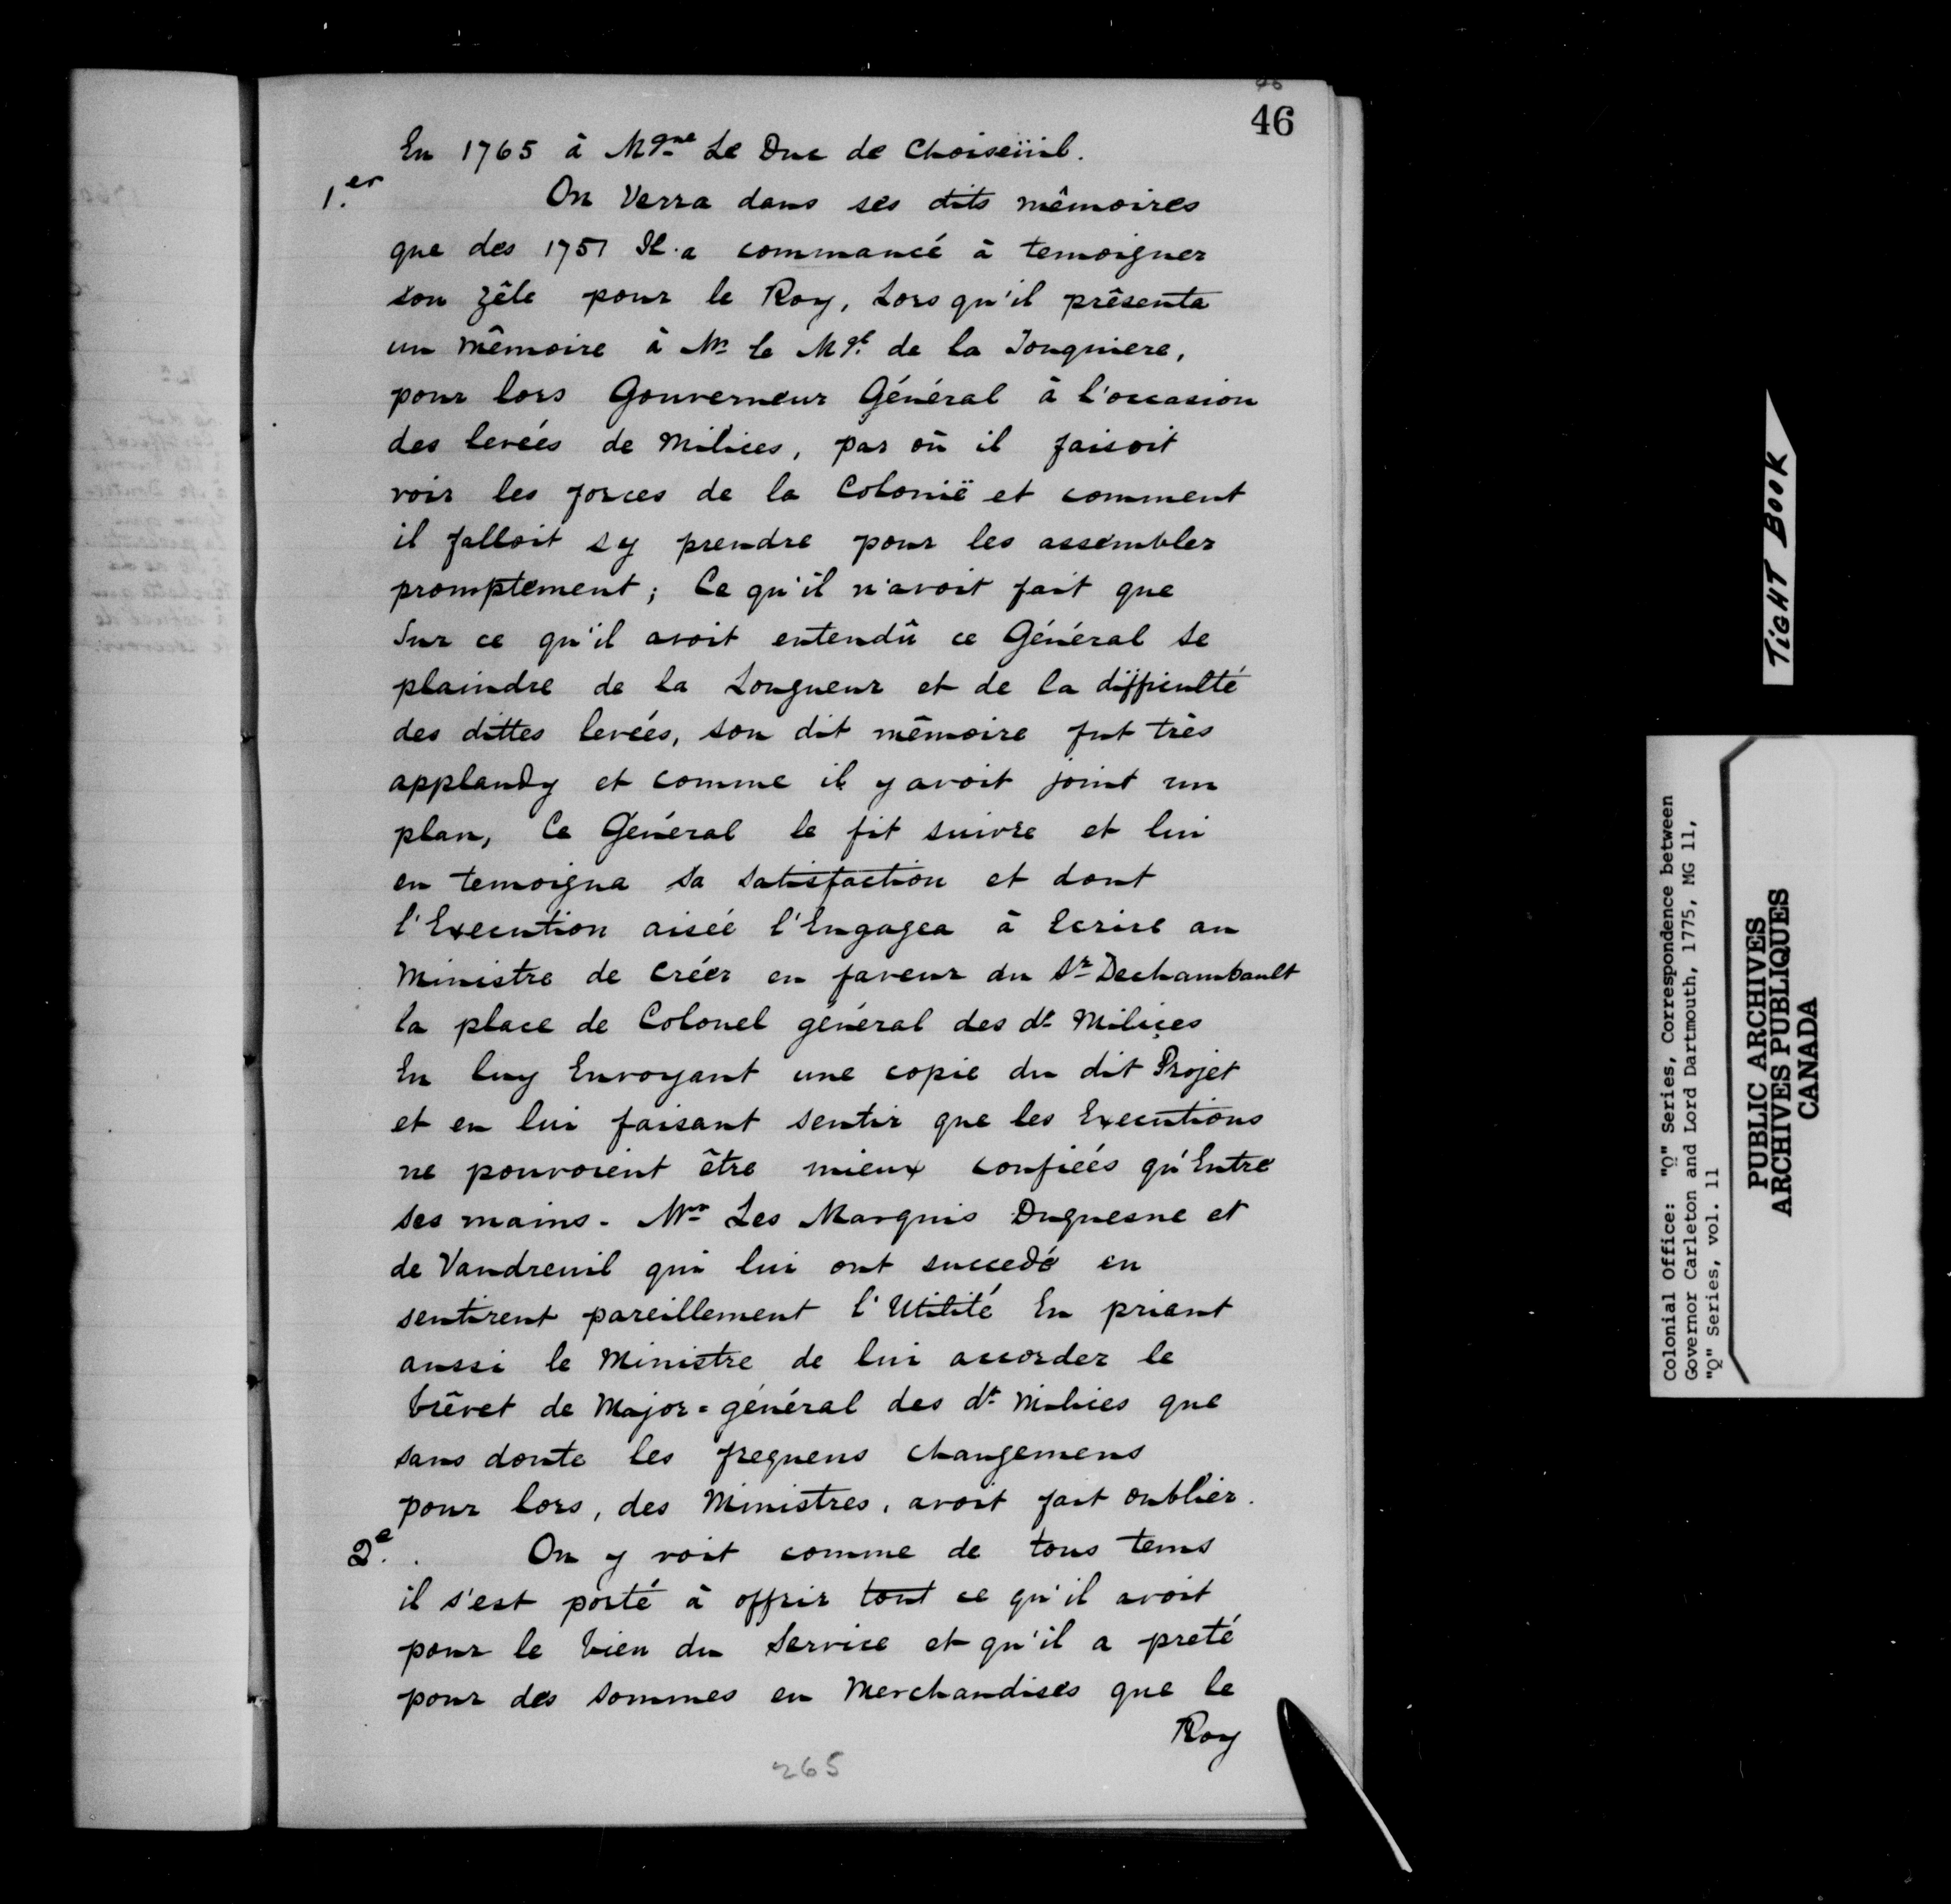 46
En 1765 à Mgne Le Duc de Choiseüil.
1.er On Verra dans ses dits mêmoires
que des 1751 Il a commancé à temoigner
son zêle pour le Roy, Lors qu'il prêsenta
un mêmoire à Mr le Mqs. de la Jonquiere,
pour lors Gouverneur Général à l'occasion
des leveés de Milices, par où il faisoit
voir les forces de la Colonië et comment
il falloit s y prendre pour les assembler
promptement; Ce qu'il n'avoit fait que
Sur ce qu'il avoit entendû ce Général se
plaindre de la Longueur et de la difficulté
des dittes leveés, son dit mêmoire fut très
applaudy et comme il y avoit joint un
plan, Ce Géneral le fit suivre et lui
en temoigna sa satisfaction et dont
l'Execution aiseé l'Engagea à Ecrire au
Ministre de Créer en faveur du Sr Dechambault
la place de Colonel géneral des dt Milices
En luy Envoyant une copie du dit Projet
et en lui faisant sentir que les Executions
ne pouvoient être mieux confieés qu'Entre
ses mains. Mrs Les Marquis Duquesne et
de Vaudreuil qui lui ont succedé en
sentirent pareillement l'Utilité En priant
aussi le Ministre de lui accorder le
brêvet de Major=général des dt Milices que
sans doute les frequens changemens
pour lors, des Ministres, avoit fait oublier.
2e. On y voit comme de tous tems
il s'est porté à offrir tout ce qu'il avoit
pour le bien du Service et qu'il a preté
pour des sommes en Merchandises que le
Roy
265
TIGHT BOOK
Colonial Office: "Q" Series, Correspondence between
Governor Carleton and Lord Dartmouth, 1775, MG 11,
"Q" Series, vol. 11
PUBLIC ARCHIVES
ARCHIVES PUBLIQUES
CANADA